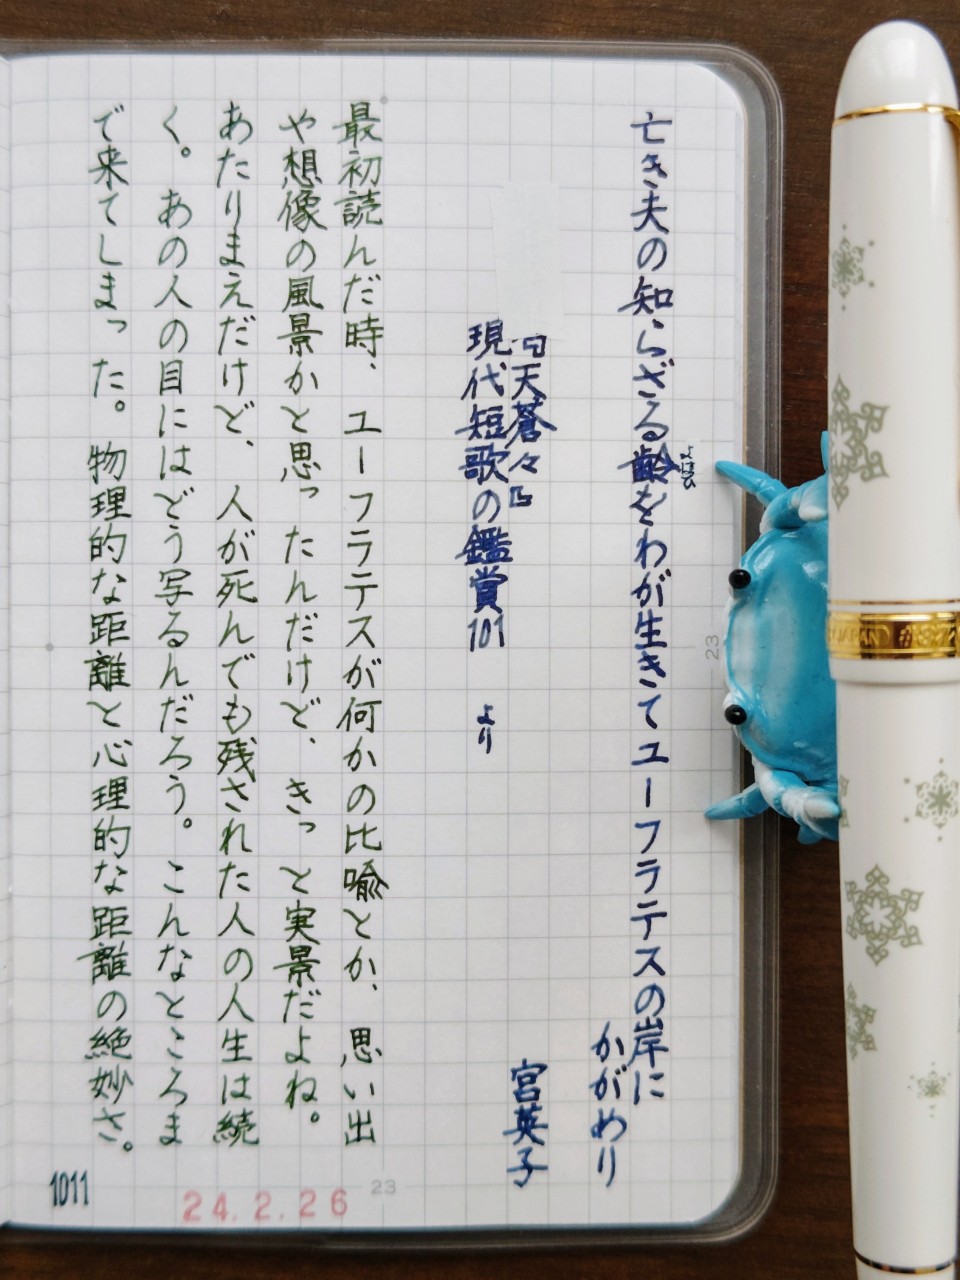 亡き夫の知らざる齢をわが生きてユーフラテスの岸に
よはひ
かがめり
宮英子
『天蒼々』
現代短歌の鑑賞101 より
最初読んだ時、ユーフラテスが何かの比喩とか、思い出
や想像の風景かと思ったんだけど、きっと実景だよね。
あたりまえだけど、人が死んでも残された人の人生は続
く。あの人の目にはどう写るんだろう。こんなところま
で来てしまった。物理的な距離と心理的な距離の絶妙さ。
1011
24.2.26
23
23